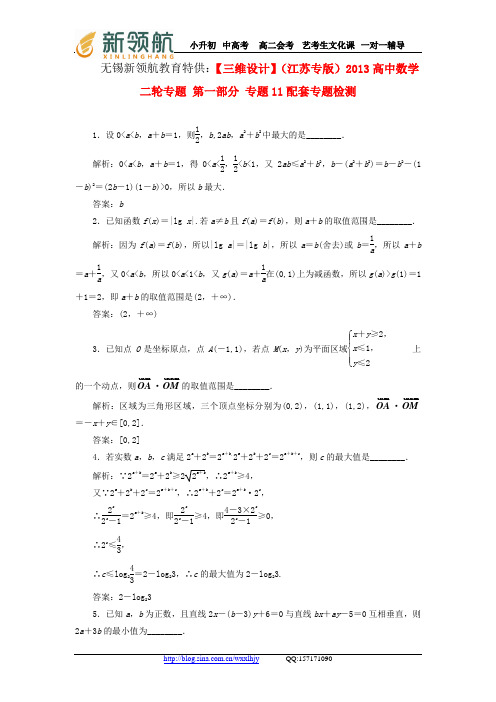 新领航
XINLINGHANG
小升初 中高考 高二会考 艺考生文化课 一对一辅导
无锡新领航教育特供:【三维设计】(江苏专版)2013高中数学
二轮专题 第一部分 专题11配套专题检测
1.设0<a<b,a+b=1,则1/2,b,2ab,a²+b²中最大的是________.
解析:0<a<b,a+b=1,得 0<a<1/2,1/2<b<1,又 2ab≤a²+b²,b-(a²+b²)=b-b²-(1
-b)²=(2b-1)(1-b)>0,所以b最大.
答案:b
2.已知函数f(x)=|lg x|.若a≠b且f(a)=f(b),则a+b的取值范围是________.
解析:因为f(a)=f(b),所以|lg a|=|lg b|,所以a=b(舍去)或b=1/a,所以a+b
=a+1/a,又0<a<b,所以0<a<1<b,又g(a)=a+1/a在(0,1)上为减函数,所以g(a)>g(1)=1
+1=2,即a+b的取值范围是(2,+∞).
答案:(2,+∞)
3.已知点 O 是坐标原点,点 A(-1,1),若点 M(x,y)为平面区域{x+y≥2, x≤1, y≤2 上
的一个动点,则OA·OM的取值范围是________.
解析:区域为三角形区域,三个顶点坐标分别为(0,2),(1,1),(1,2),OA·OM
=-x+y∈[0,2].
答案:[0,2]
4.若实数a,b,c满足2^a+2^b=2^(a+b),2^a+2^b+2^c=2^(a+b+c),则c的最大值是________.
解析:∵2^(a+b)=2^a+2^b≥2√(2^(a+b)),∴2^(a+b)≥4,
又∵2^a+2^b+2^c=2^(a+b+c),∴2^(a+b)+2^c=2^(a+b)·2^c,
∴2^c/(2^c-1)=2^(a+b)≥4,即2^c/(2^c-1)≥4,即(4-3×2^c)/(2^c-1)≥0,
∴2^c≤4/3,
∴c≤log₂4/3=2-log₂3,∴c的最大值为2-log₂3.
答案:2-log₂3
5.已知a,b为正数,且直线2x-(b-3)y+6=0与直线bx+ay-5=0互相垂直,则
2a+3b的最小值为________.
http://blog.sina.com.cn/wxxlhjy QQ:157171090